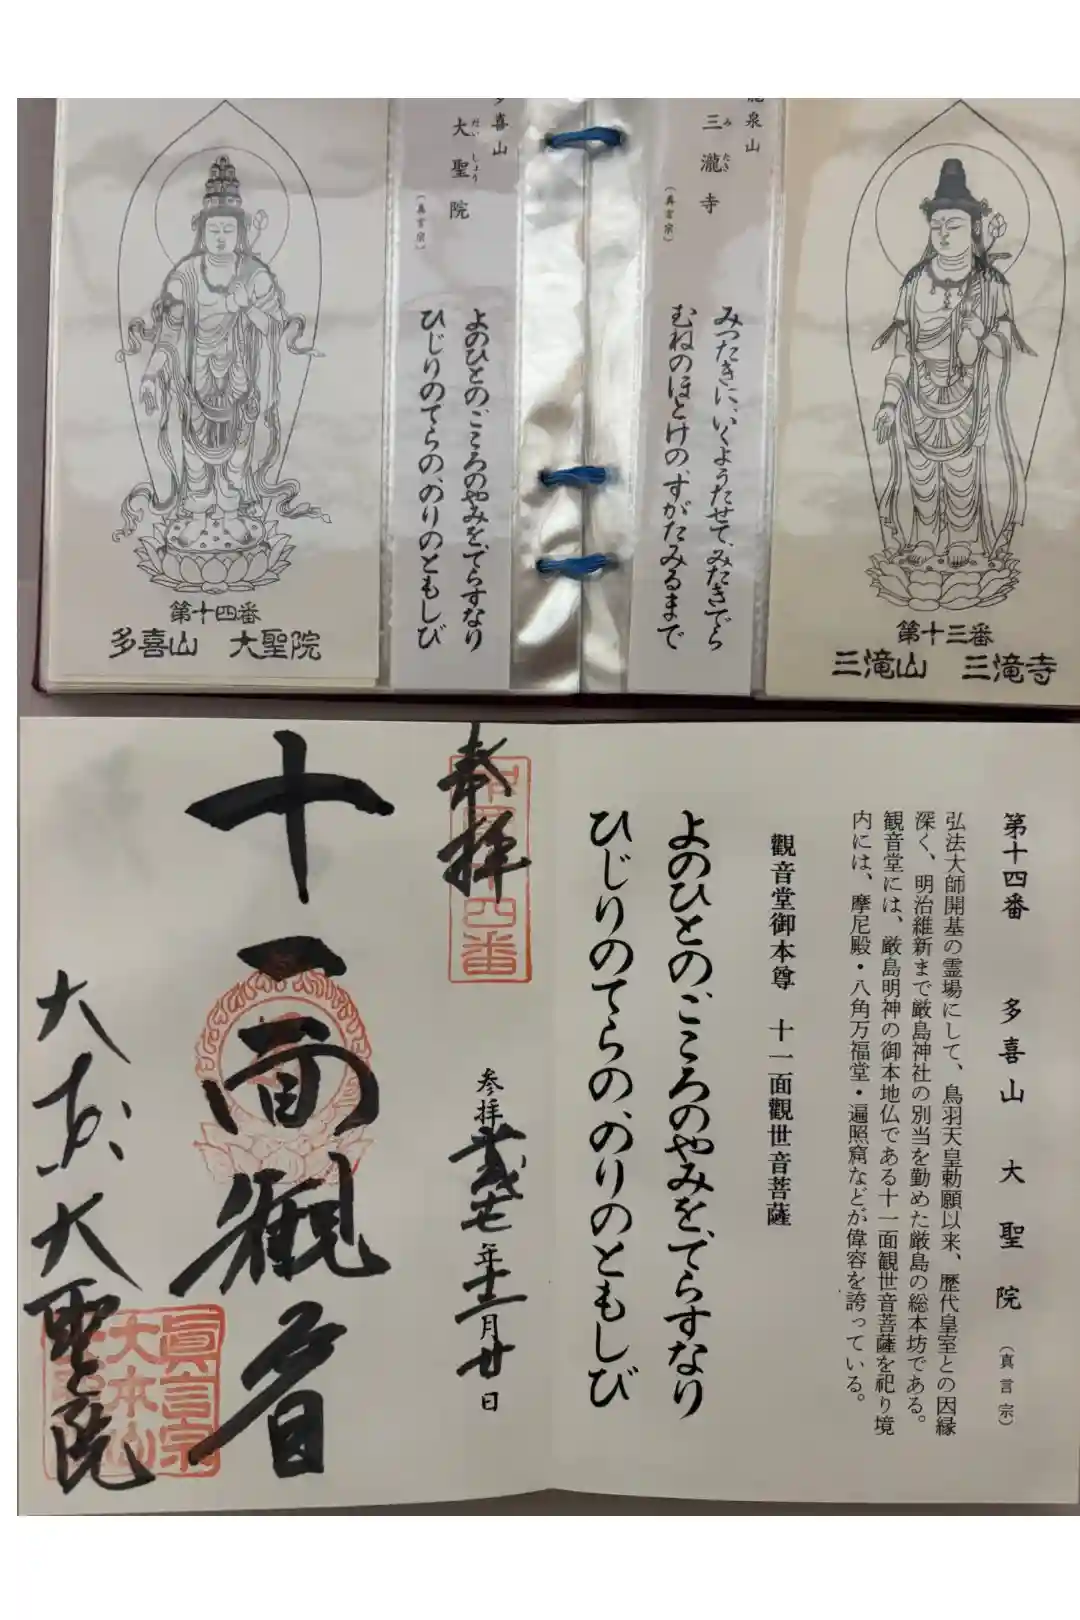 泉山
三瀧寺
み たき
(真言宗)
みつたきに、いくようたせて、みたきでら
むねのほとけの、すがたみるまで
第十三番
三滝山 三滝寺
喜山
大聖院
だい しょう
(真言宗)
よのひとのこころのやみを、てらすなり
ひじりのてらの、のりのともしび
第十四番
多喜山 大聖院
第十四番 多喜山 大聖院 (真言宗)
弘法大師開基の霊場にして、鳥羽天皇勅願以来、歴代皇室との因縁
深く、明治維新まで厳島神社の別当を勤めた厳島の総本坊である。
観音堂には、厳島明神の御本地仏である十一面観世音菩薩を祀り境
内には、摩尼殿・八角万福堂・遍照窟などが偉容を誇っている。
觀音堂御本尊 十一面觀世音菩薩
よのひとのこころのやみを、てらすなり
ひじりのてらの、のりのともしび
奉拝
四番
参拝 年十二月廿日
十一面観音
大聖院
眞言宗
大本山